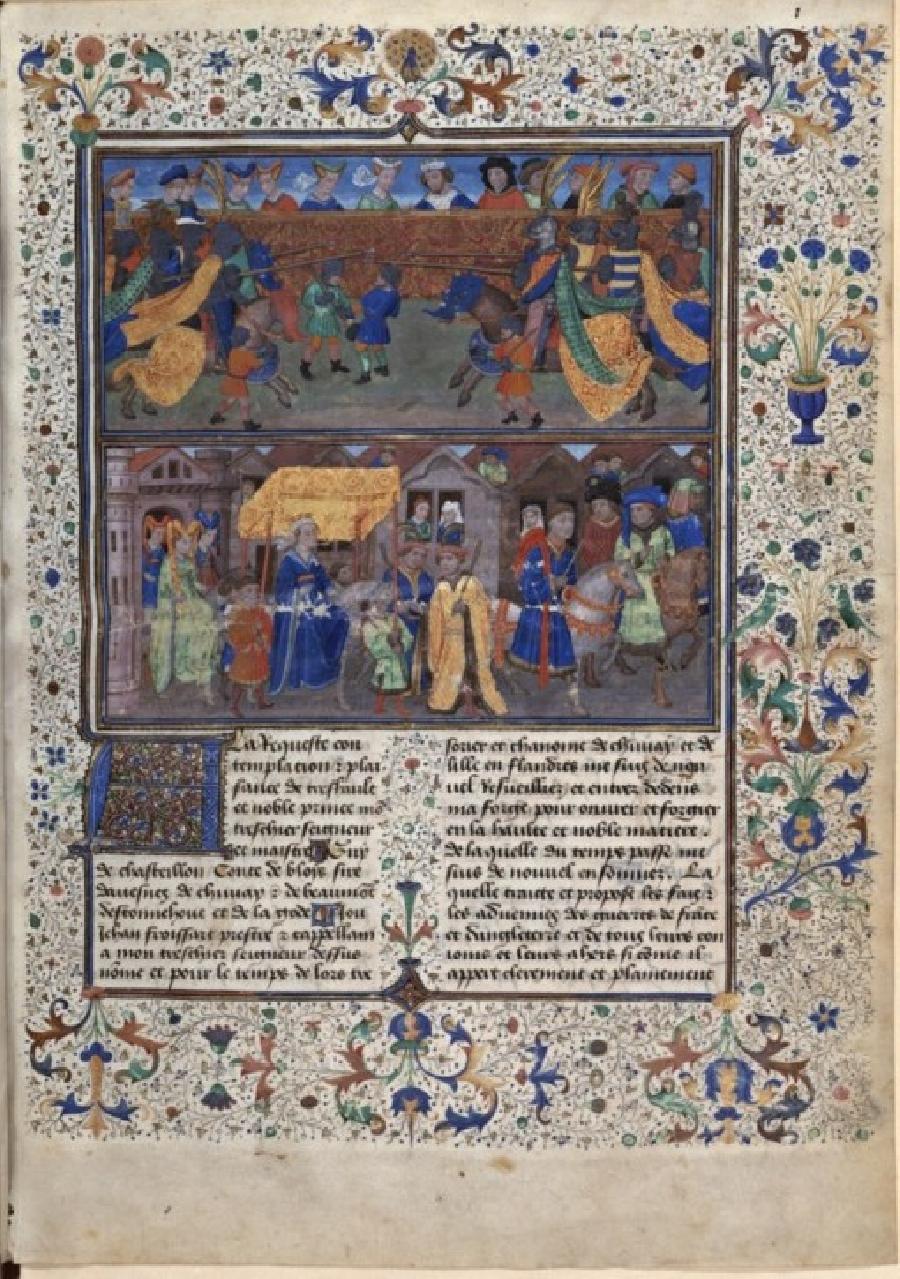 1
A La Requeste con
templation ⁊ plai
sance de treshaulte
et noble prince mõ
treschier seigneur
et maistre Guy
de chasteillon Conte de blois sire
davesnes de chimay ⁊ de beaumõt
destonnehone et de la gode Je
Jehan froissart prestre ⁊ cappellain
a mon treschier seigneur dessus
nõme et pour le temps de lors tre
sorier et chanoine de chimay et de
lille en flandres me suis de nou
uel Resueilliez et entrez dedens
ma forge pour ouurer et forgier
en la haulte et noble matiere .
de laquelle du temps passe me
suis de nouuel ensonnier . La
quelle traicte et propose les fais ⁊
les aduenues des guerres de frãce
et dangleterre et de tous leurs con
ioins et leurs aherx si cõme il
appert clerement et plainement